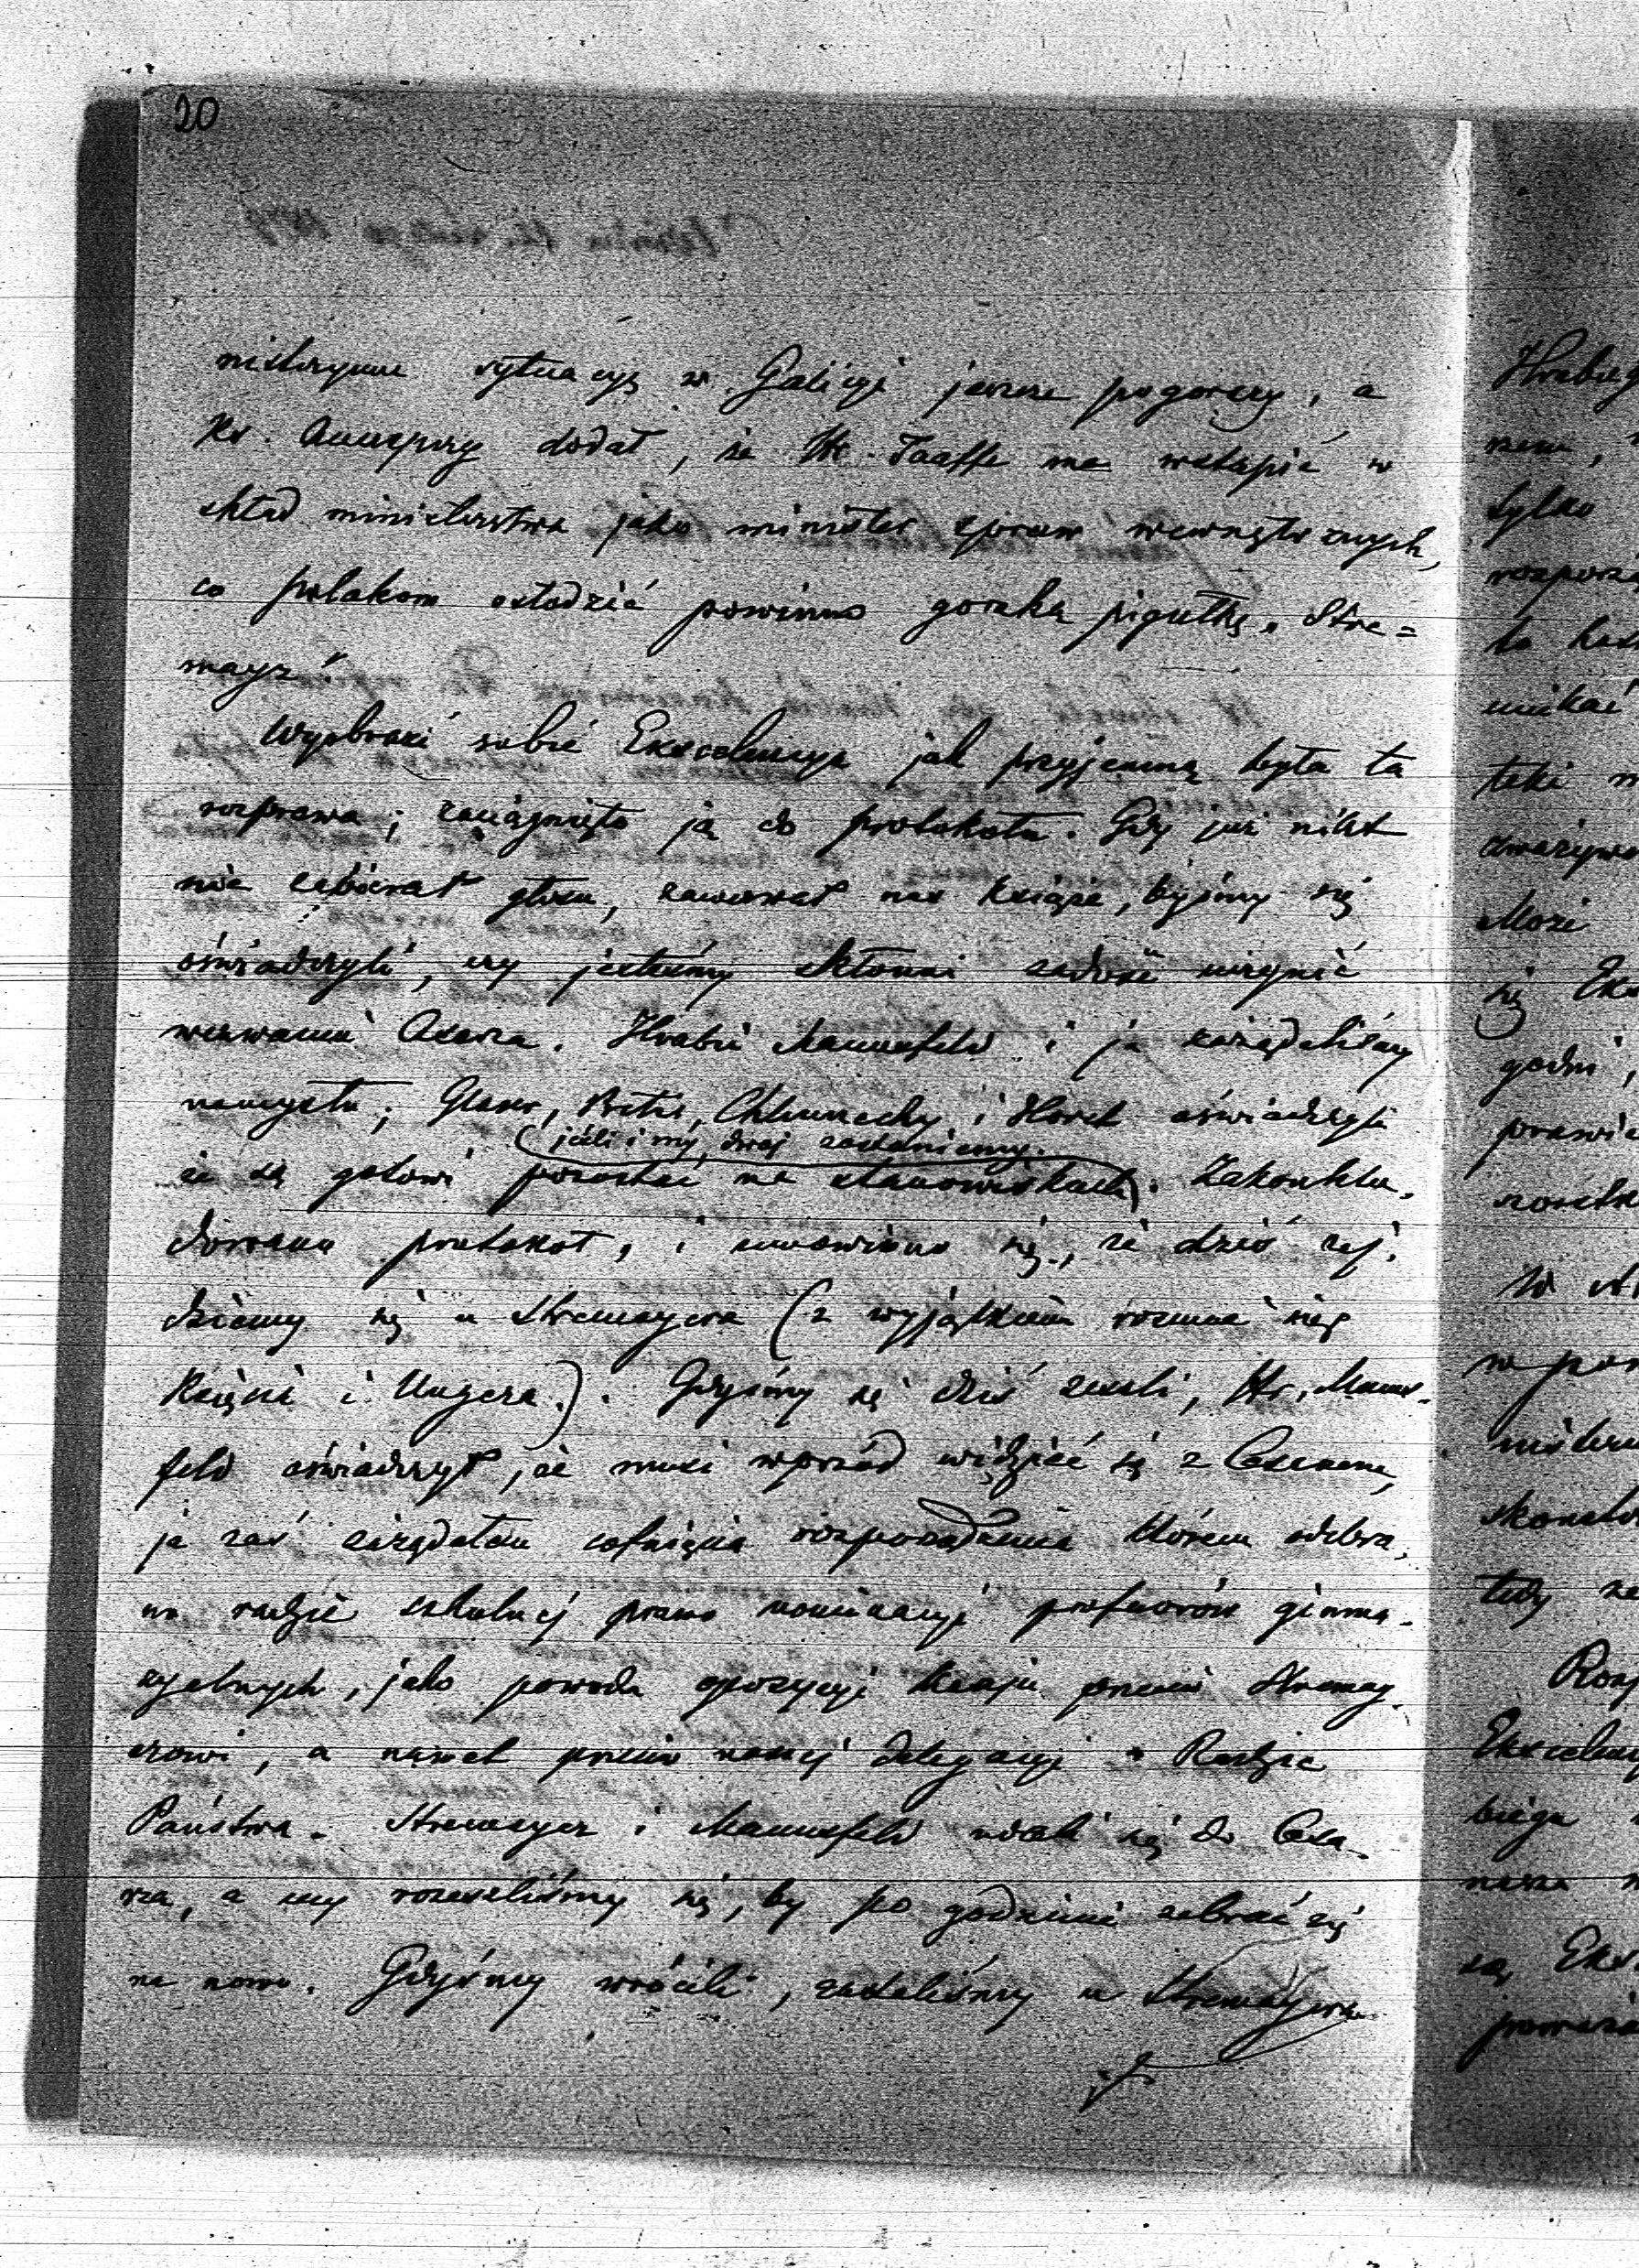 20
nisterium sytuacyę w Galicyi jeszcze pogorszy, a
Ks. Auersperg dodał, że Hr. Taaffe ma wstąpić w
skład ministerstwa jako minister spraw wewnętrznych,
co polakom osłodzić powinno gorzką pigułkę „Stre=
mayr“.
Wyobrazi sobie Excelencya jak przyjemną była ta
rozprawa; zaciągnięto ją do protokołu. Gdy już nikt
nie zabierał głosu, zawezwał nas Książe, byśmy się
oświadczyli, czy jesteśmy skłonni zadość uczynić
wezwaniu Cesarza. Hrabia Mannsfeld i ja zażądaliśmy
namysłu; Glaser, Pretis, Chlumecky i Horst oświadczyli
(jeśli i my dwaj zostaniemy.
że są gotowi pozostać na stanowiskach). Zakonklu-
dowano protokół, i umówiono się, że dziś zej-
dziemy się u Stremayera (z wyjątkiem rozumie się
Księcia i Ungera). Gdyśmy się dziś zeszli, Hr. Manns-
feld oświadczył, że musi wprzód widzieć się z Cesarzem,
ja zaś zażądałem cofnięcia rozporządzenia którem odebra-
no radzie szkolnej prawo nominacyi profesorów gimna-
zyalnych, jako powodu opozycyi Kraju przeciw Stremay-
erowi, a nawet przeciw naszej delegacyi w Radzie
Państwa. Stremayer i Mannsfeld udali się do Cesa-
rza, a my rozeszliśmy się, by po godzinie zebrać się
na nowo. Gdyśmy wrócili, zastaliśmy u Stremayera
Hrabieg
tylko
rozporzą
unikać
Może
się Exc
godni,
prawie
w
tedy
Excelency
biega
nasza